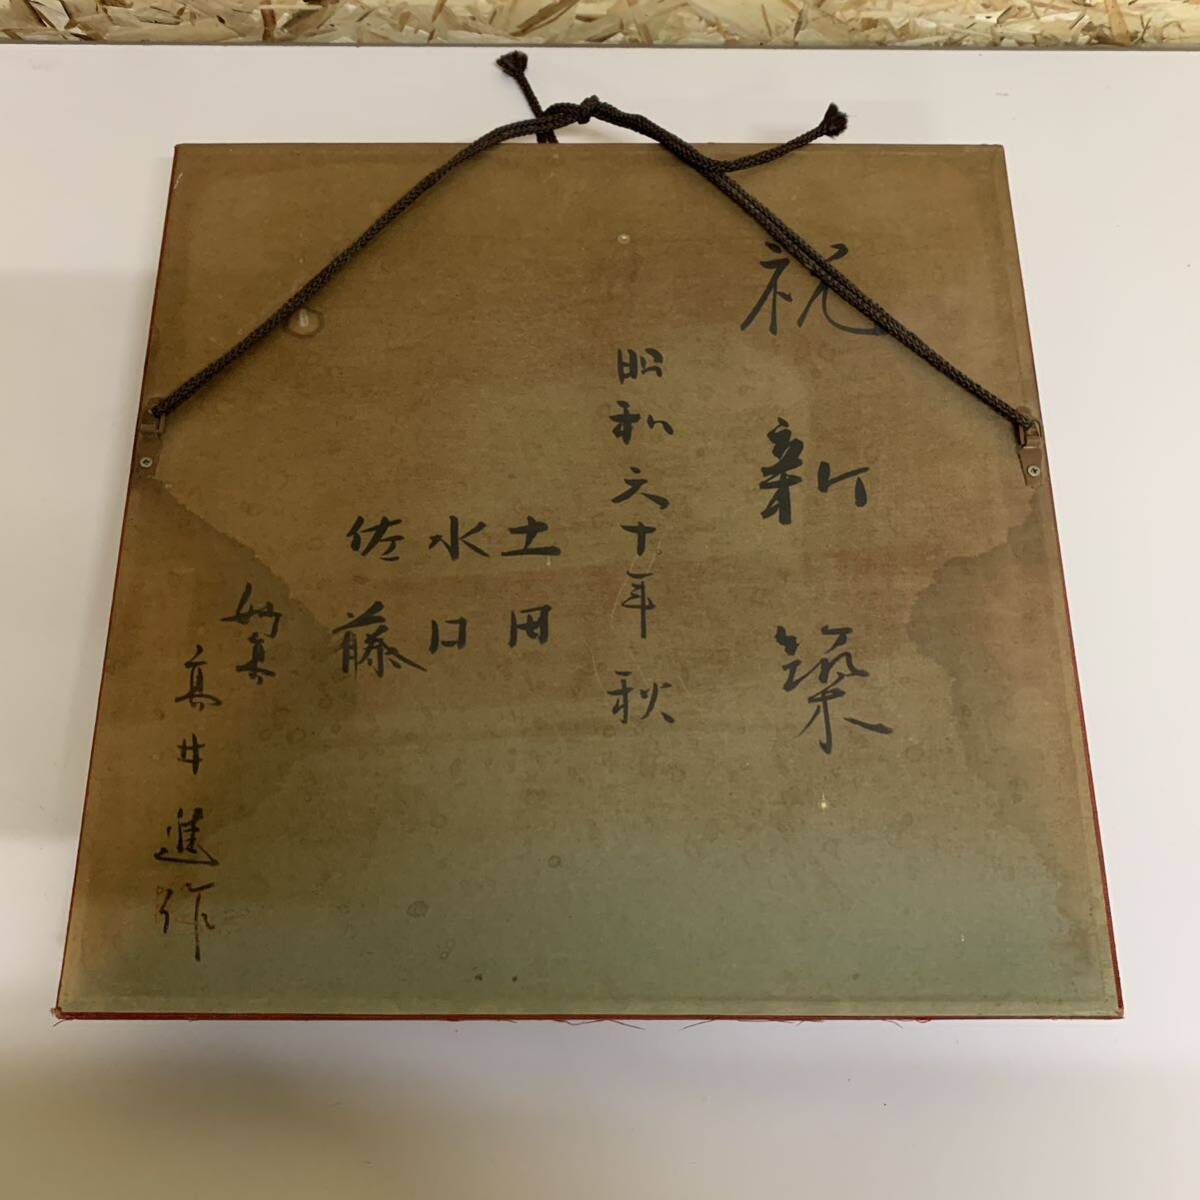 祝新築
昭和六十年秋
土田
水口
佐藤
高井進作